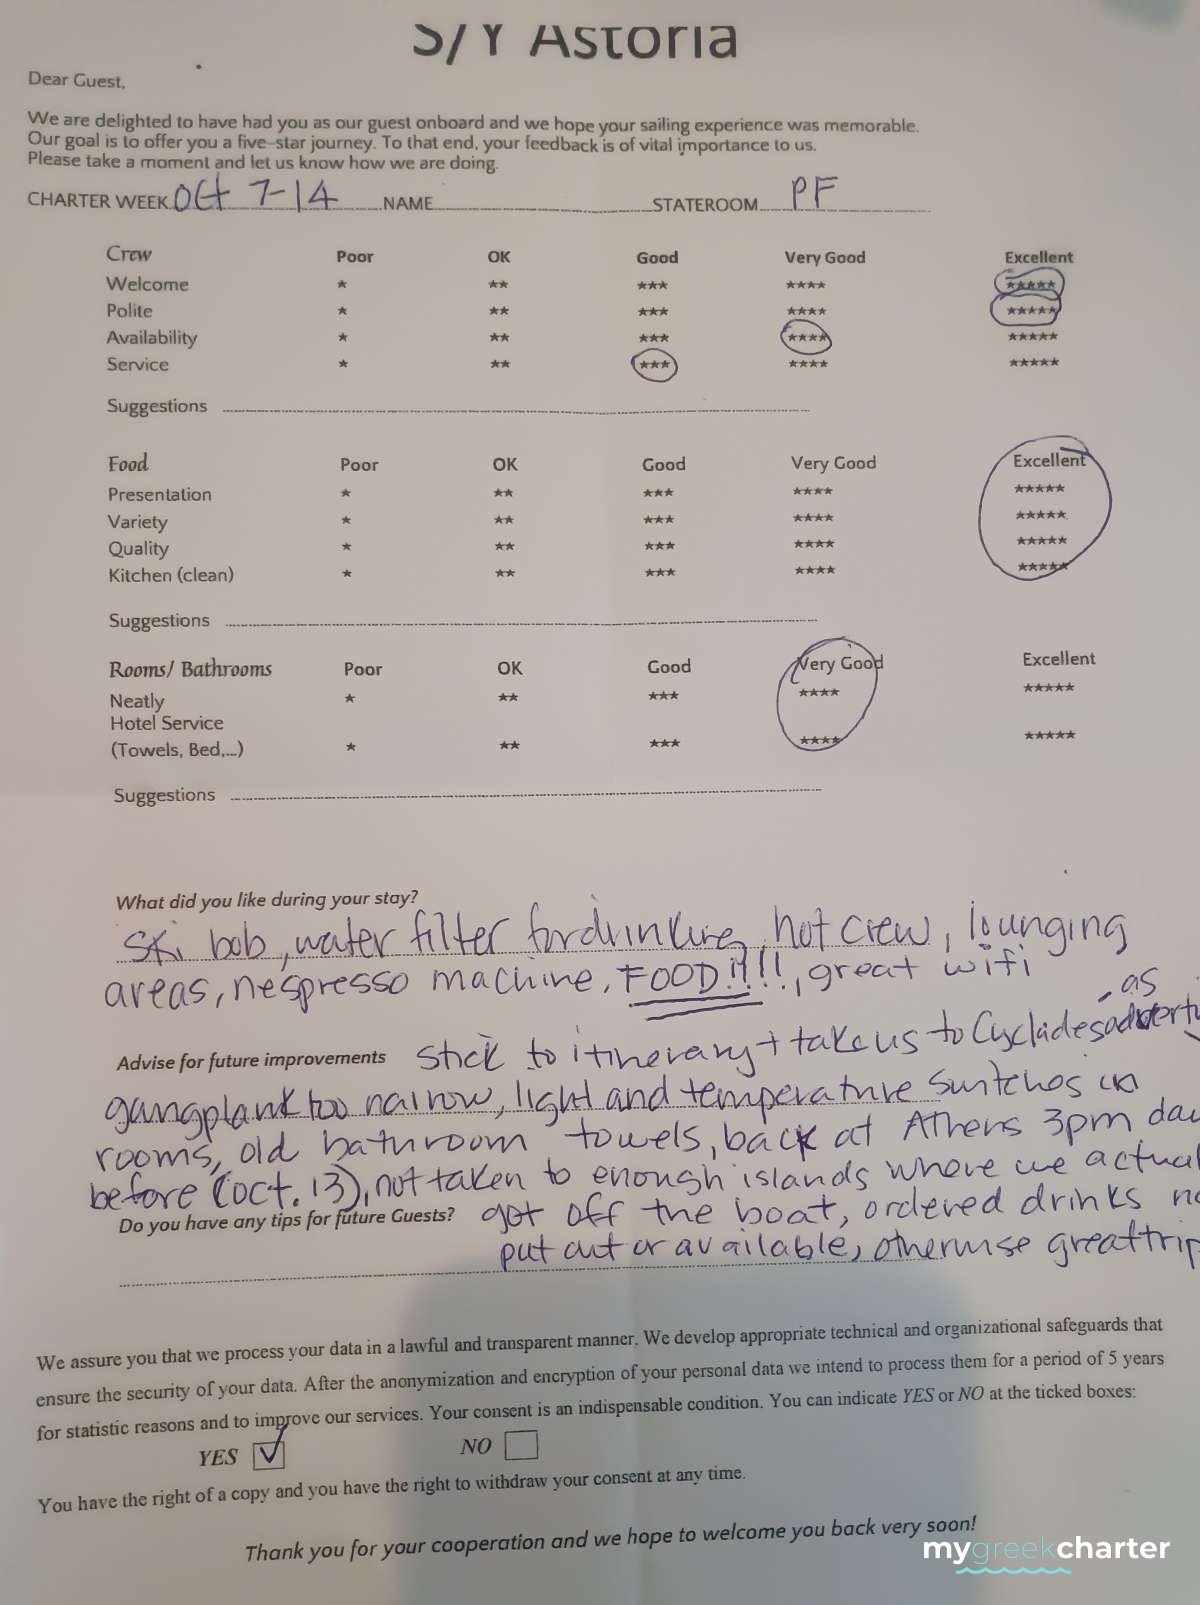 S/Y Astoria
Dear Guest,
We are delighted to have had you as our guest onboard and we hope your sailing experience was memorable.
Our goal is to offer you a five-star journey. To that end, your feedback is of vital importance to us.
Please take a moment and let us know how we are doing.
CHARTER WEEK Oct 7-14 NAME STATEROOM PF
Crew Poor OK Good Very Good Excellent
Welcome * ** *** **** *****
Polite * ** *** **** *****
Availability * ** *** **** *****
Service * ** *** **** *****
Suggestions
Food Poor OK Good Very Good Excellent
Presentation * ** *** **** *****
Variety * ** *** **** *****
Quality * ** *** **** *****
Kitchen (clean) * ** *** **** *****
Suggestions
Rooms/ Bathrooms Poor OK Good Very Good Excellent
Neatly * ** *** **** *****
Hotel Service
(Towels, Bed,...) * ** *** **** *****
Suggestions
What did you like during your stay?
Ski bob, water filter for drinking, hot crew, lounging
areas, nespresso machine, FOOD!!!!, great wifi
Advise for future improvements stick to itinerary + take us to Cyclades, as
gangplank too narrow, light and temperature switches in
rooms, old bathroom towels, back at Athens 3pm day
before (Oct. 13), not taken to enough islands where we actual
Do you have any tips for future Guests? got off the boat, ordered drinks
put out or available, otherwise great trip
We assure you that we process your data in a lawful and transparent manner. We develop appropriate technical and organizational safeguards that
ensure the security of your data. After the anonymization and encryption of your personal data we intend to process them for a period of 5 years
for statistic reasons and to improve our services. Your consent is an indispensable condition. You can indicate YES or NO at the ticked boxes:
YES ✓ NO
You have the right of a copy and you have the right to withdraw your consent at any time.
Thank you for your cooperation and we hope to welcome you back very soon!
mygreekcharter